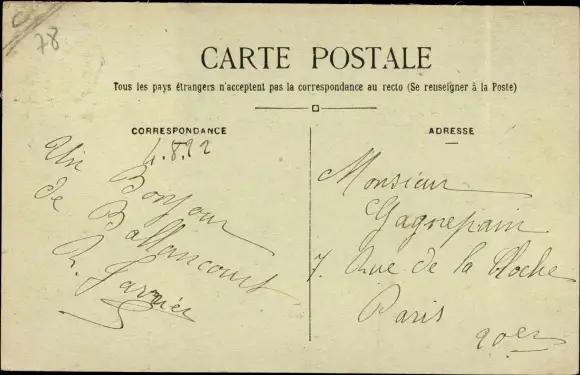 78
CARTE POSTALE
Tous les pays étrangers n'acceptent pas la correspondance au recto (Se renseigner à la Poste)
CORRESPONDANCE
4.8.22
Un Bonjour
de Ballancourt
R. Garnier
ADRESSE
Monsieur
Gagnepain
7. Rue de la Cloche
Paris
20es